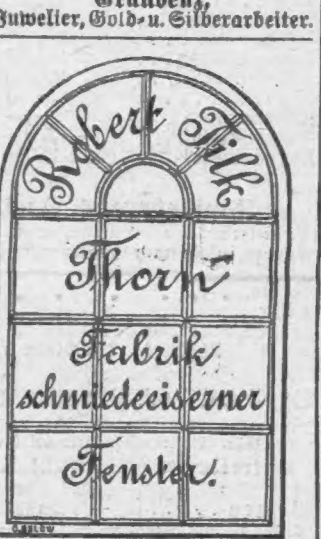 Graudenz,
Juwelier, Gold- u. Silberarbeiter.
Robert Tilk
Thorn
Fabrik
schmiedeeiserner
Fenster.